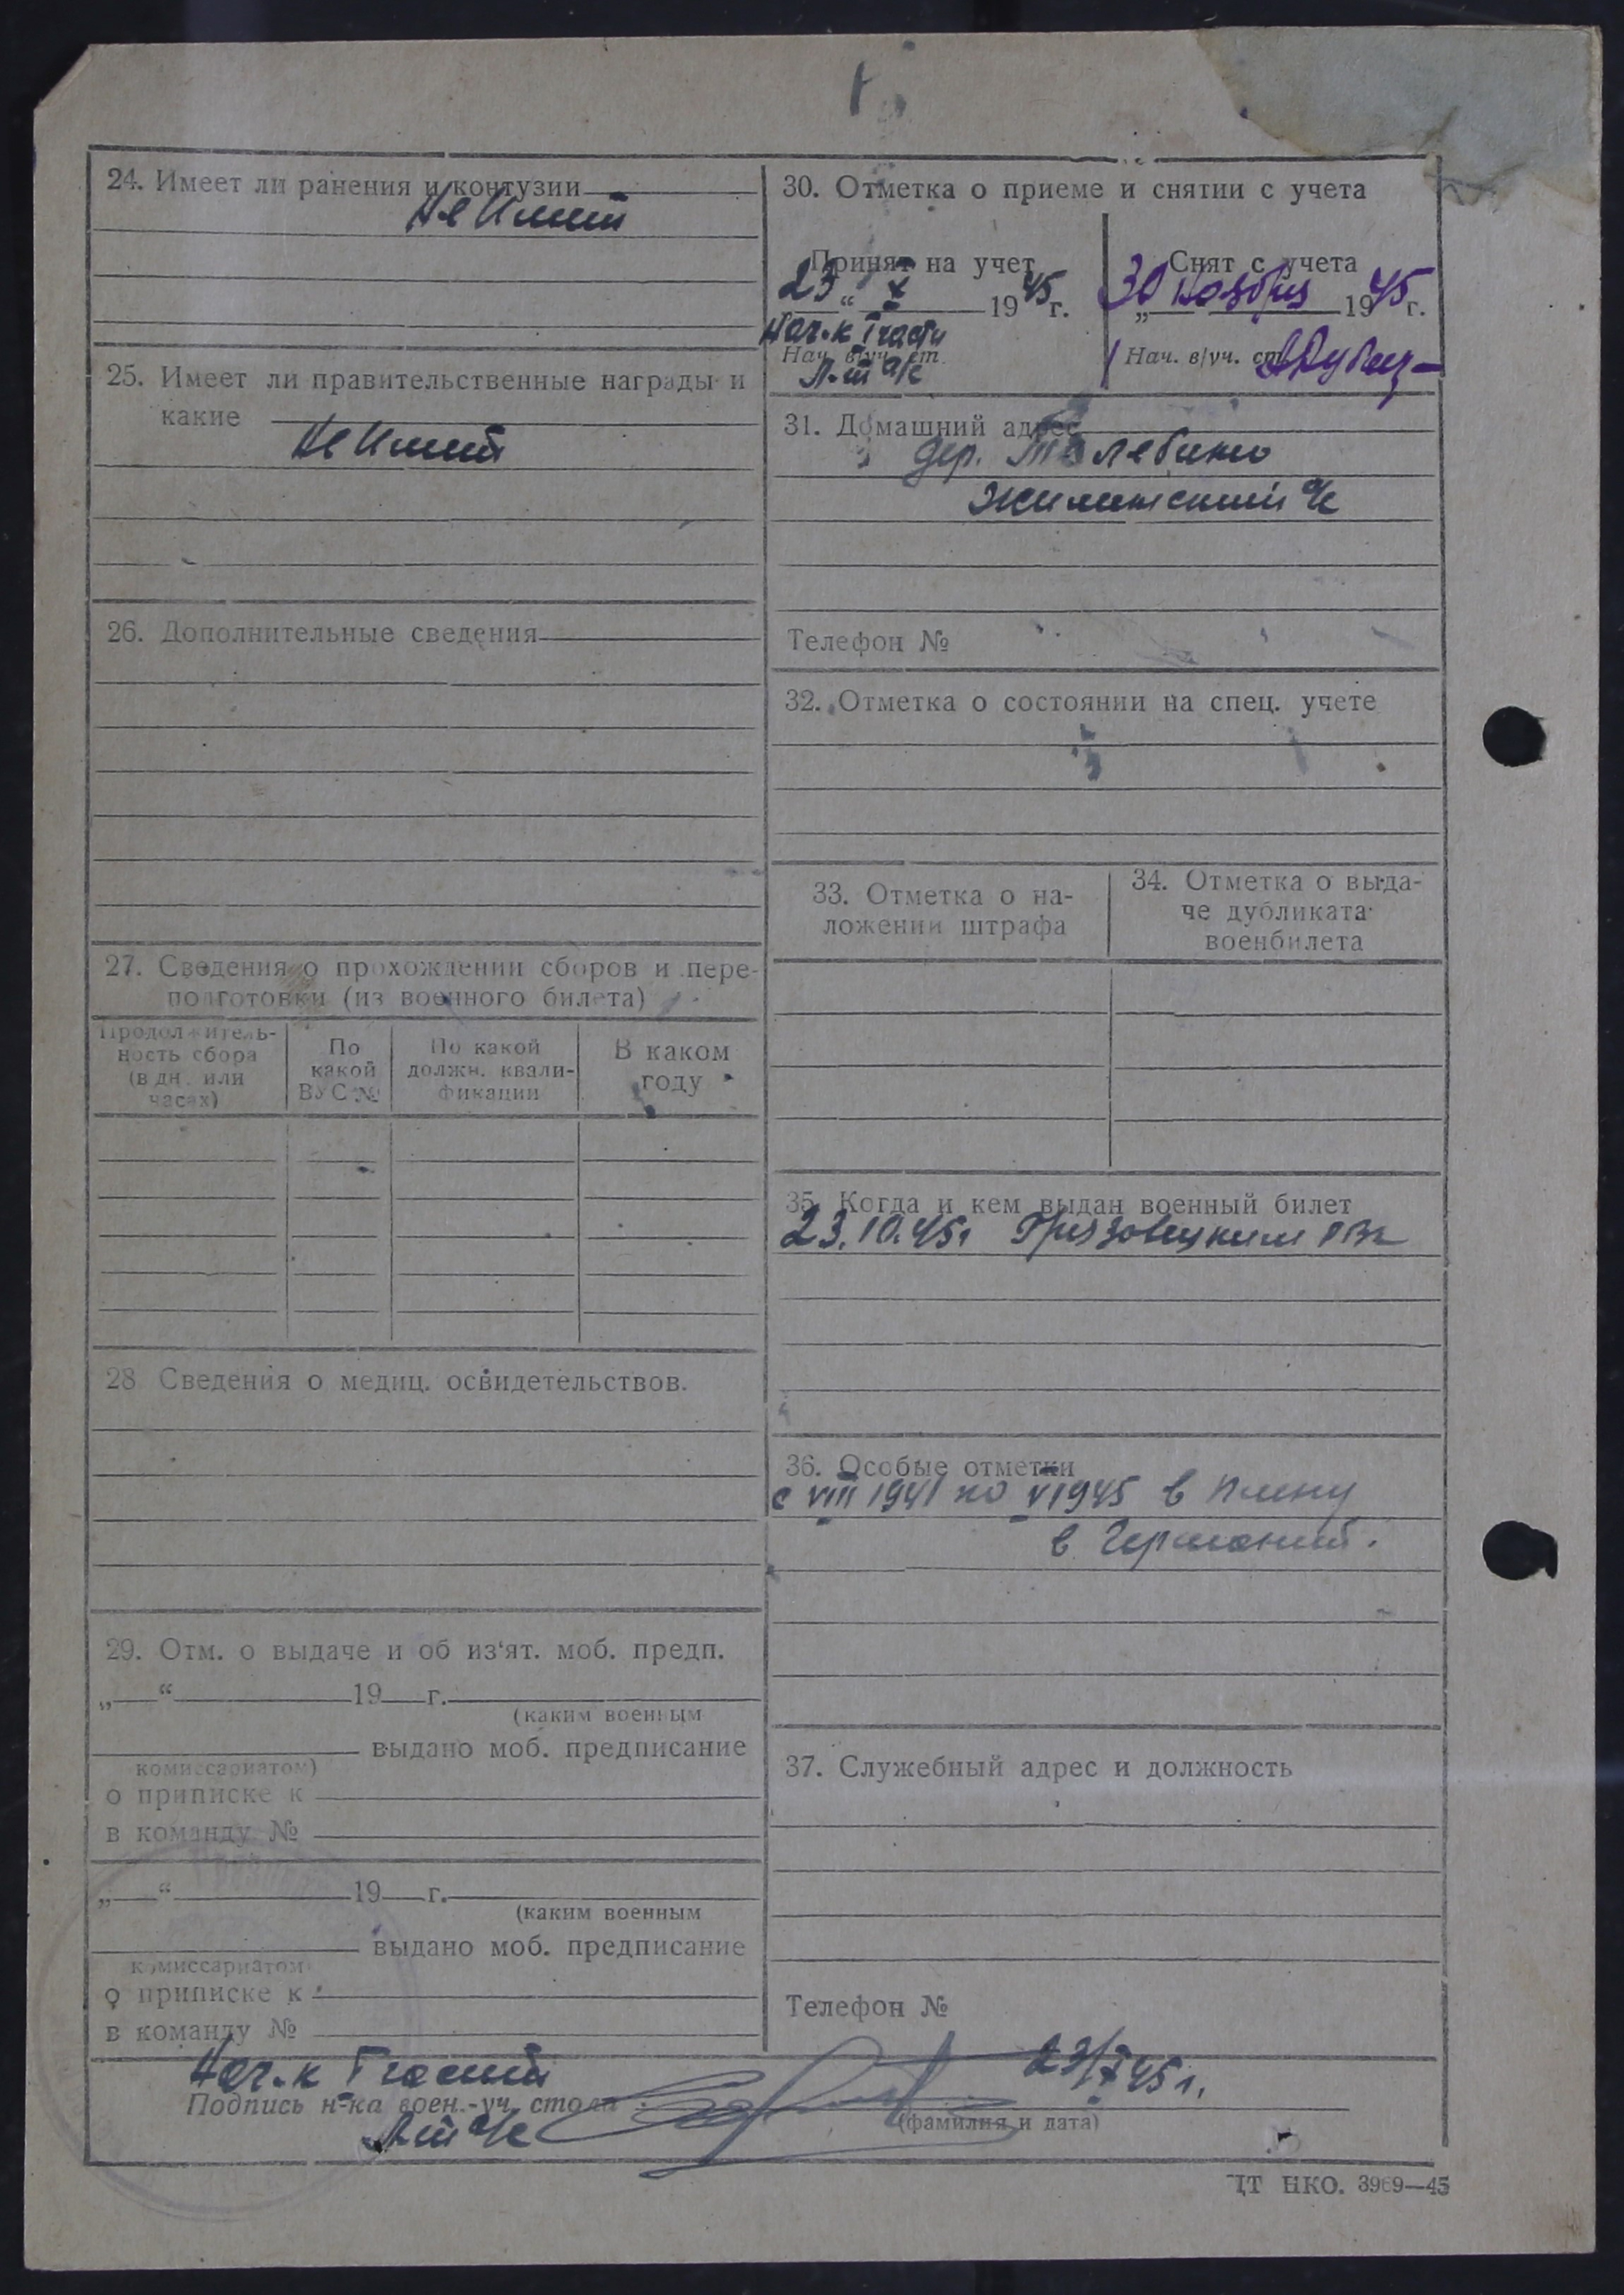 24. Имеет ли ранения и контузии
Не Имеит
25. Имеет ли правительственные награды и
какие
Не Имеит
26. Дополнительные сведения
27. Сведения о прохождении сборов и пере-
подготовки (из военного билета)
Продолжитель-
ность сбора
(в дн. или
часах)
По
какой
ВУС №
По какой
должн. квали-
фикации
В каком
году
28 Сведения о медиц. освидетельствов.
29. Отм. о выдаче и об из‘ят. моб. предп.
„ “ 19 г.
(каким военным
выдано моб. предписание
комиссариатом)
о приписке к
в команду №
„ “ 19 г.
(каким военным
выдано моб. предписание
комиссариатом
о приписке к
в команду №
30. Отметка о приеме и снятии с учета
Принят на учет
23 “ X 1945 г.
Нач-к I части
Нач. в/уч. ст.
Снят с учета
„30 ноября 1945 г.
Нач. в/уч. ст.
31. Домашний адрес
дер.
с/с
Телефон №
32. Отметка о состоянии на спец. учете
33. Отметка о на-
ложении штрафа
34. Отметка о выда-
че дубликата
военбилета
35. Когда и кем выдан военный билет
23.10.45г Грязовецким РВк
36. Особые отметки
с VIII 1941 по V 1945 в плену
в Германий.
37. Служебный адрес и должность
Телефон №
Нач-к I части
23/X 45 г.
Подпись н-ка воен.-уч. стола
(фамилия и дата)
ЦТ НКО. 3969—45